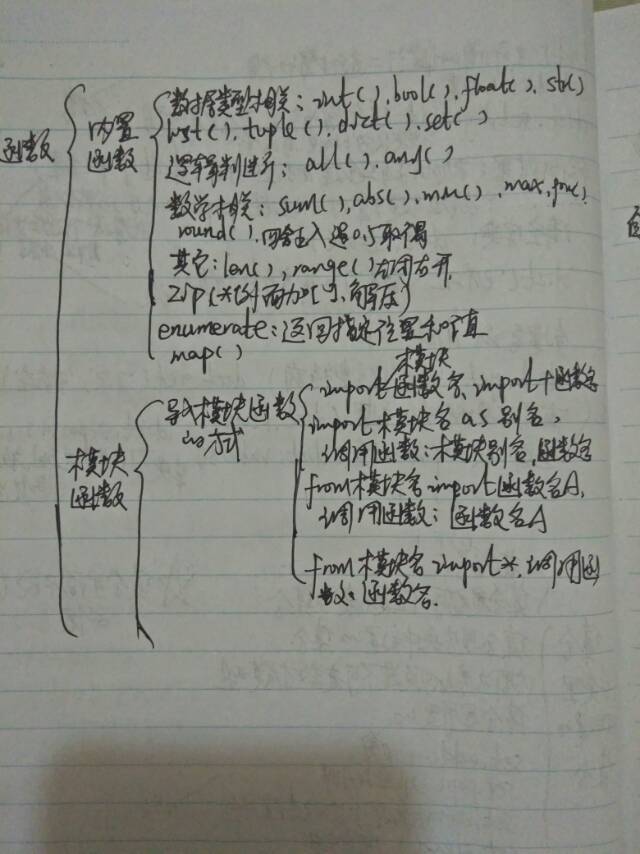 函数
内置
函数
数据类型相关：int(),bool(),float(),str()
list(),tuple(),dict(),set()
逻辑判断：all(),any()
数学相关：sum(),abs(),min(),max,
round(),四舍五入遇0.5取偶
其它：len(),range()左闭右开
zip(*代列加[],解压)
enumerate:返回指定位置和值
map()
模块
函数
导入模块函数
的方式
模块
import+函数名,import+函数名
import模块名as别名,
调用函数:模块别名.函数名
from模块名import函数名A,
调用函数：函数名A
from模块名import*,调用函
数：函数名.